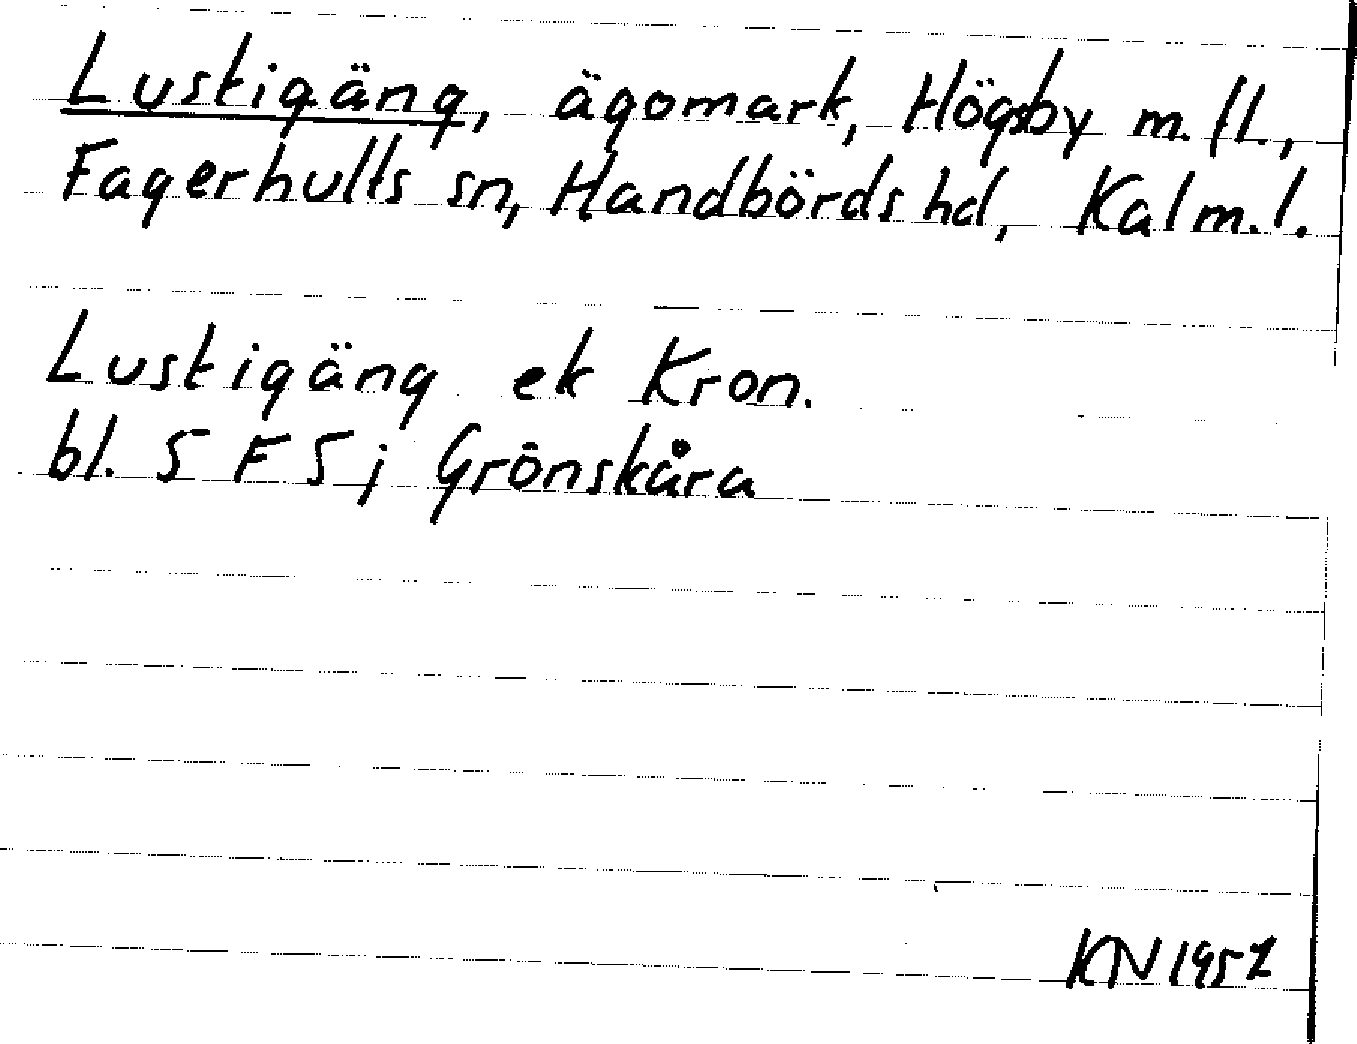 Lustigäng, ägomark, Högsby m.fl.,
Fagerhults sn, Handbörds hd, Kalm.l.
Lustigäng ek Kron.
bl. 5 F 5 j Grönskåra
KN 1957